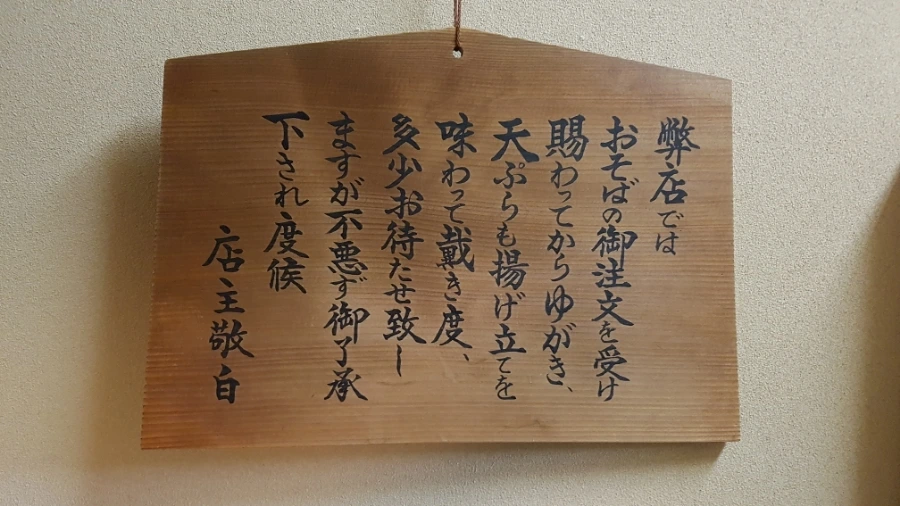 弊店では
おそばの御注文を受け
賜わってからゆがき、
天ぷらも揚げ立てを
味わって戴き度、
多少お待たせ致し
ますが不悪ず御了承
下され度候
店主敬白